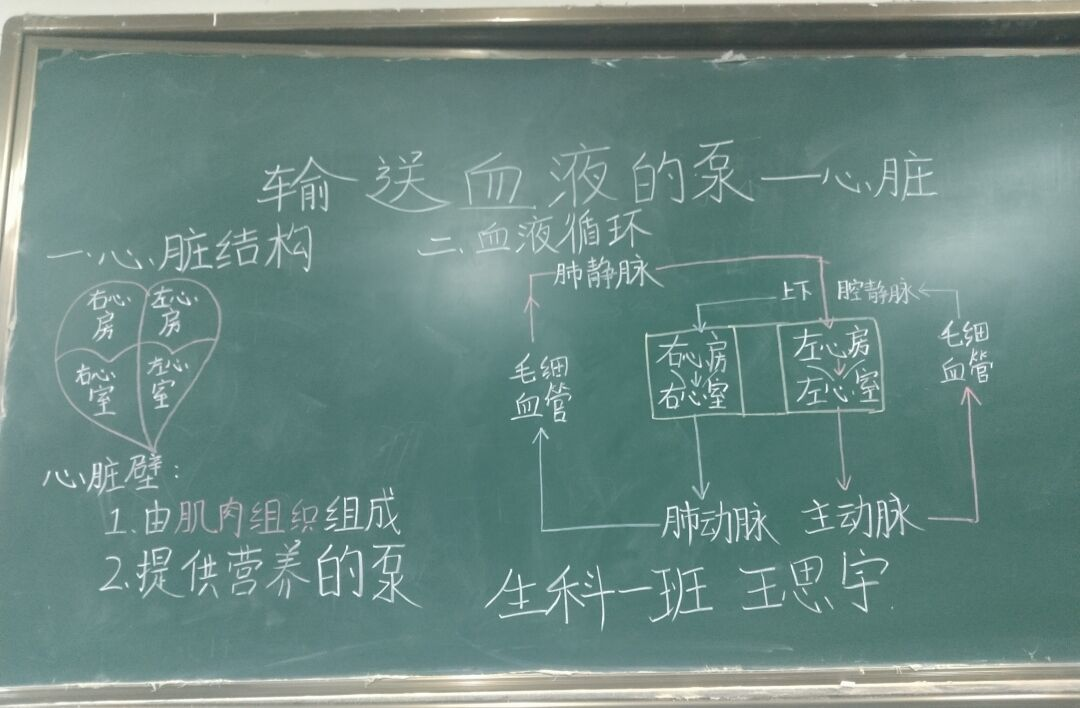 输送血液的泵—心脏
一.心脏结构
右心房
左心房
右心室
左心室
心脏壁:
1.由肌肉组织组成
2.提供营养的泵
二.血液循环
肺静脉
上下 腔静脉
毛细血管
右心房
右心室
左心房
左心室
毛细血管
肺动脉
主动脉
生科一班 王思宇